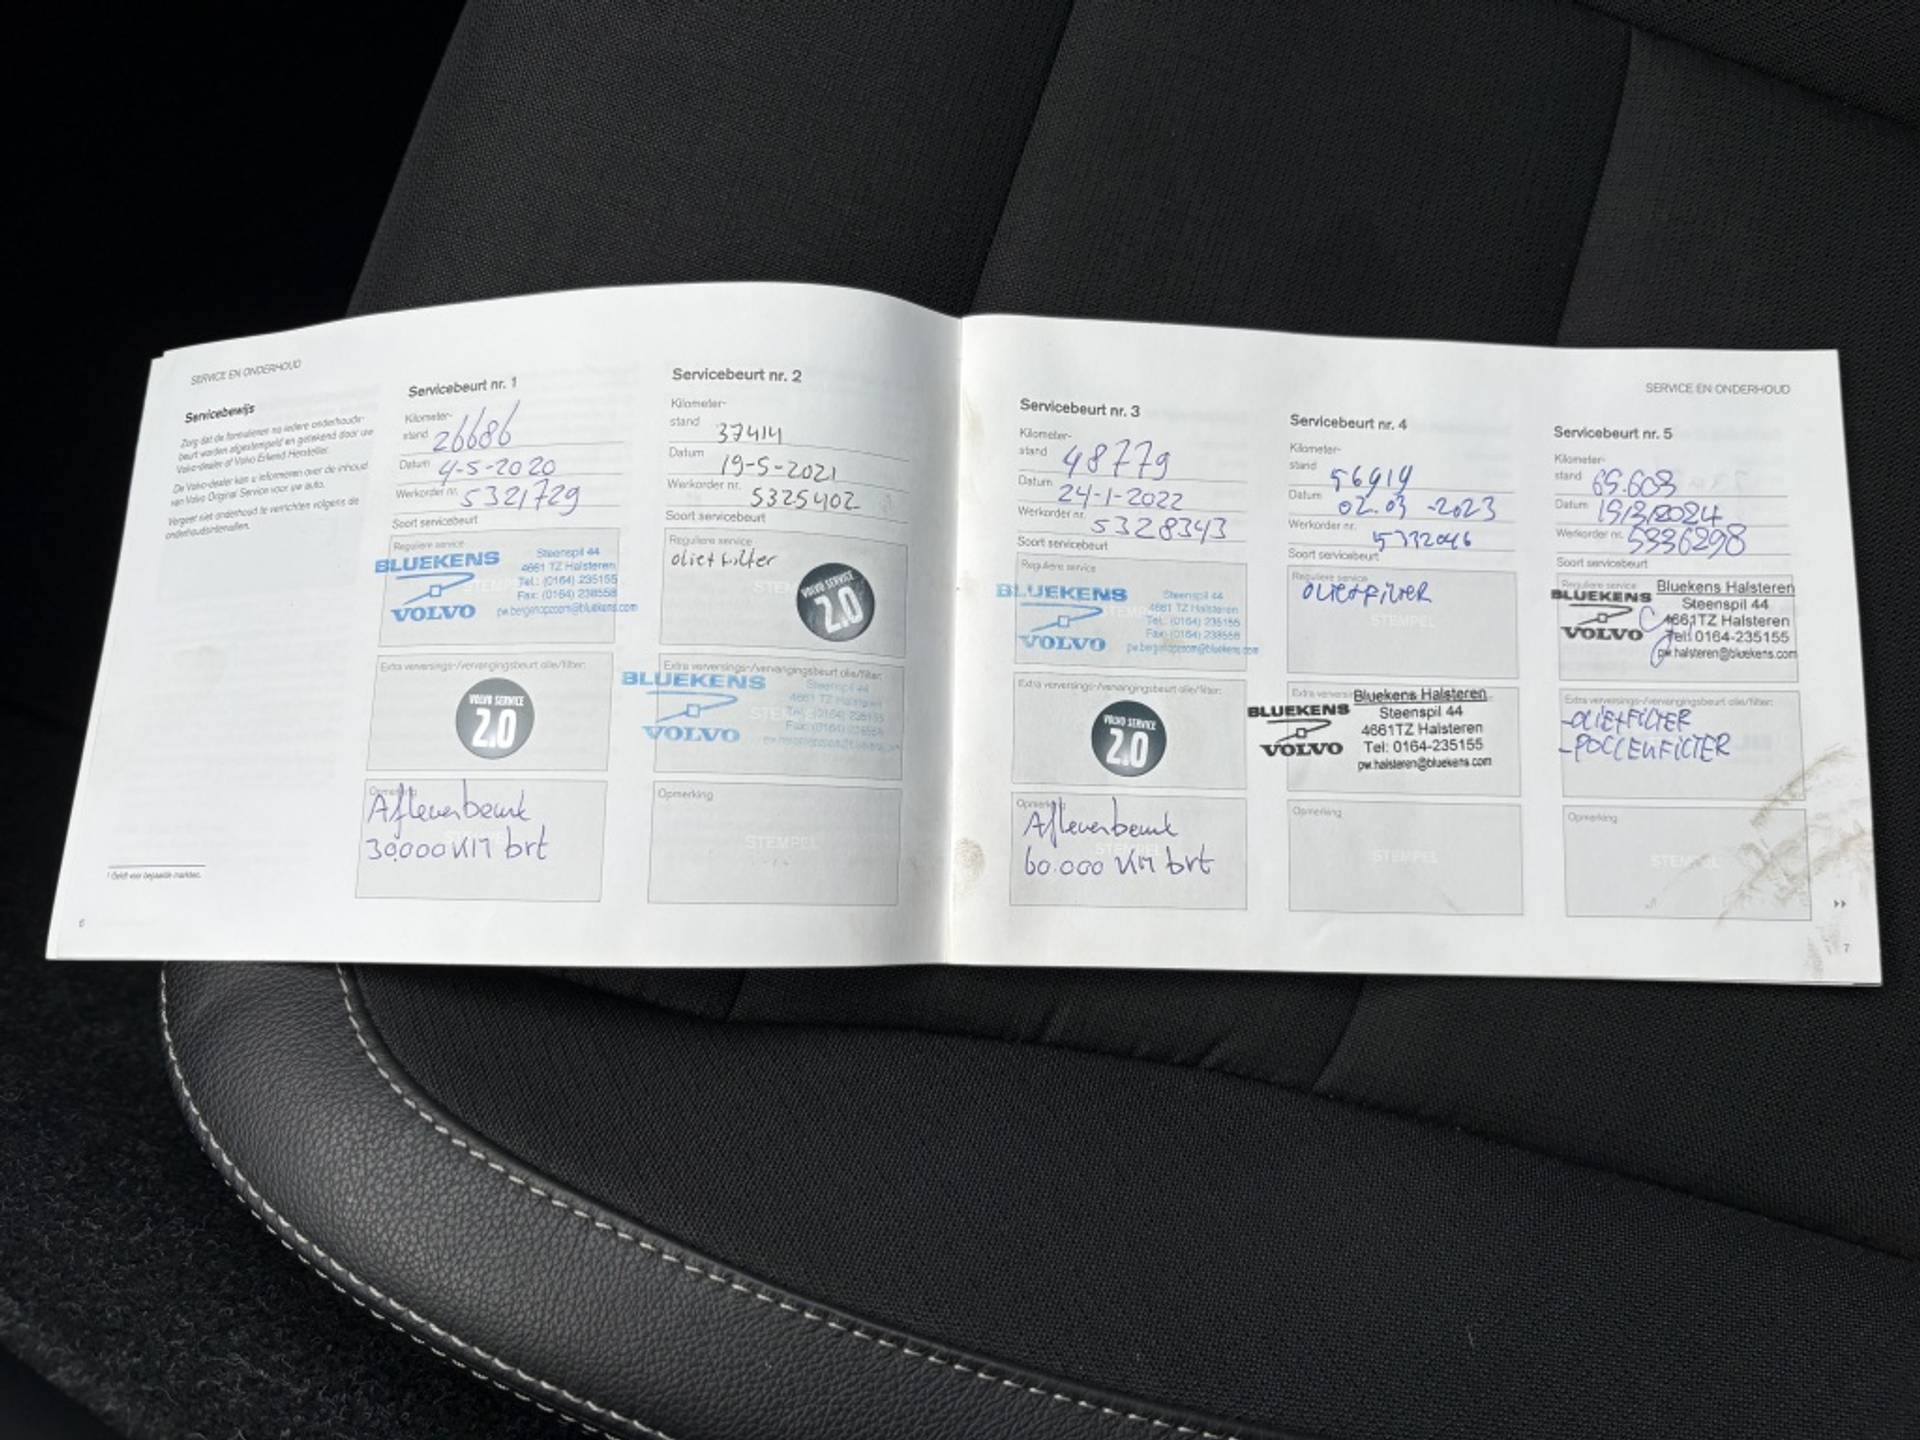 SERVICE EN ONDERHOUD
Servicebewijs
Zorg dat de formulieren na iedere onderhouds-
beurt worden afgestempeld en getekend door uw
Volvo-dealer of Volvo Erkend Hersteller.
De Volvo-dealer kan u informeren over de inhoud
van Volvo Original Service voor uw auto.
Vergeet niet onderhoud te verrichten volgens de
onderhoudsintervallen.
1 Geldt voor bepaalde markten.
6
Servicebeurt nr. 1
Kilometer-
stand 26686
Datum 4-5-2020
Werkorder nr. 5321729
Soort servicebeurt
Reguliere service
BLUEKENS
VOLVO
Steenspil 44
4661 TZ Halsteren
Tel.: (0164) 235155
Fax: (0164) 238558
pw.bergenopzoom@bluekens.com
Extra verversings-/vervangingsbeurt olie/filter:
VOLVO SERVICE
2.0
Opmerking
Afleverbeurt
30.000 KM brt
Servicebeurt nr. 2
Kilometer-
stand 37414
Datum 19-5-2021
Werkorder nr. 5325402
Soort servicebeurt
Reguliere service
olie+filter
VOLVO SERVICE
2.0
Extra verversings-/vervangingsbeurt olie/filter:
BLUEKENS
VOLVO
Steenspil 44
4661 TZ Halsteren
Tel.: (0164) 235155
Fax: (0164) 238558
pw.bergenopzoom@bluekens.com
Opmerking
STEMPEL
Servicebeurt nr. 3
Kilometer-
stand 48779
Datum 24-1-2022
Werkorder nr. 5328343
Soort servicebeurt
Reguliere service
BLUEKENS
VOLVO
Steenspil 44
4661 TZ Halsteren
Tel.: (0164) 235155
Fax: (0164) 238558
pw.bergenopzoom@bluekens.com
Extra verversings-/vervangingsbeurt olie/filter:
VOLVO SERVICE
2.0
Opmerking
Afleverbeurt
STEMPEL
60.000 KM brt
Servicebeurt nr. 4
Kilometer-
stand 56919
Datum 02.03-2023
Werkorder nr. 5332046
Soort servicebeurt
Reguliere service
OLIE+FILTER
STEMPEL
BLUEKENS
VOLVO
Bluekens Halsteren
Steenspil 44
4661TZ Halsteren
Tel: 0164-235155
pw.halsteren@bluekens.com
Opmerking
STEMPEL
SERVICE EN ONDERHOUD
Servicebeurt nr. 5
Kilometer-
stand 69.603
Datum 19/3/2024
Werkorder nr. 5336298
Soort servicebeurt
Reguliere service
BLUEKENS
VOLVO
Bluekens Halsteren
Steenspil 44
4661TZ Halsteren
Tel: 0164-235155
pw.halsteren@bluekens.com
Extra verversings-/vervangingsbeurt olie/filter:
-OLIE+FILTER
-POLLENFILTER
Opmerking
STEMPEL
7